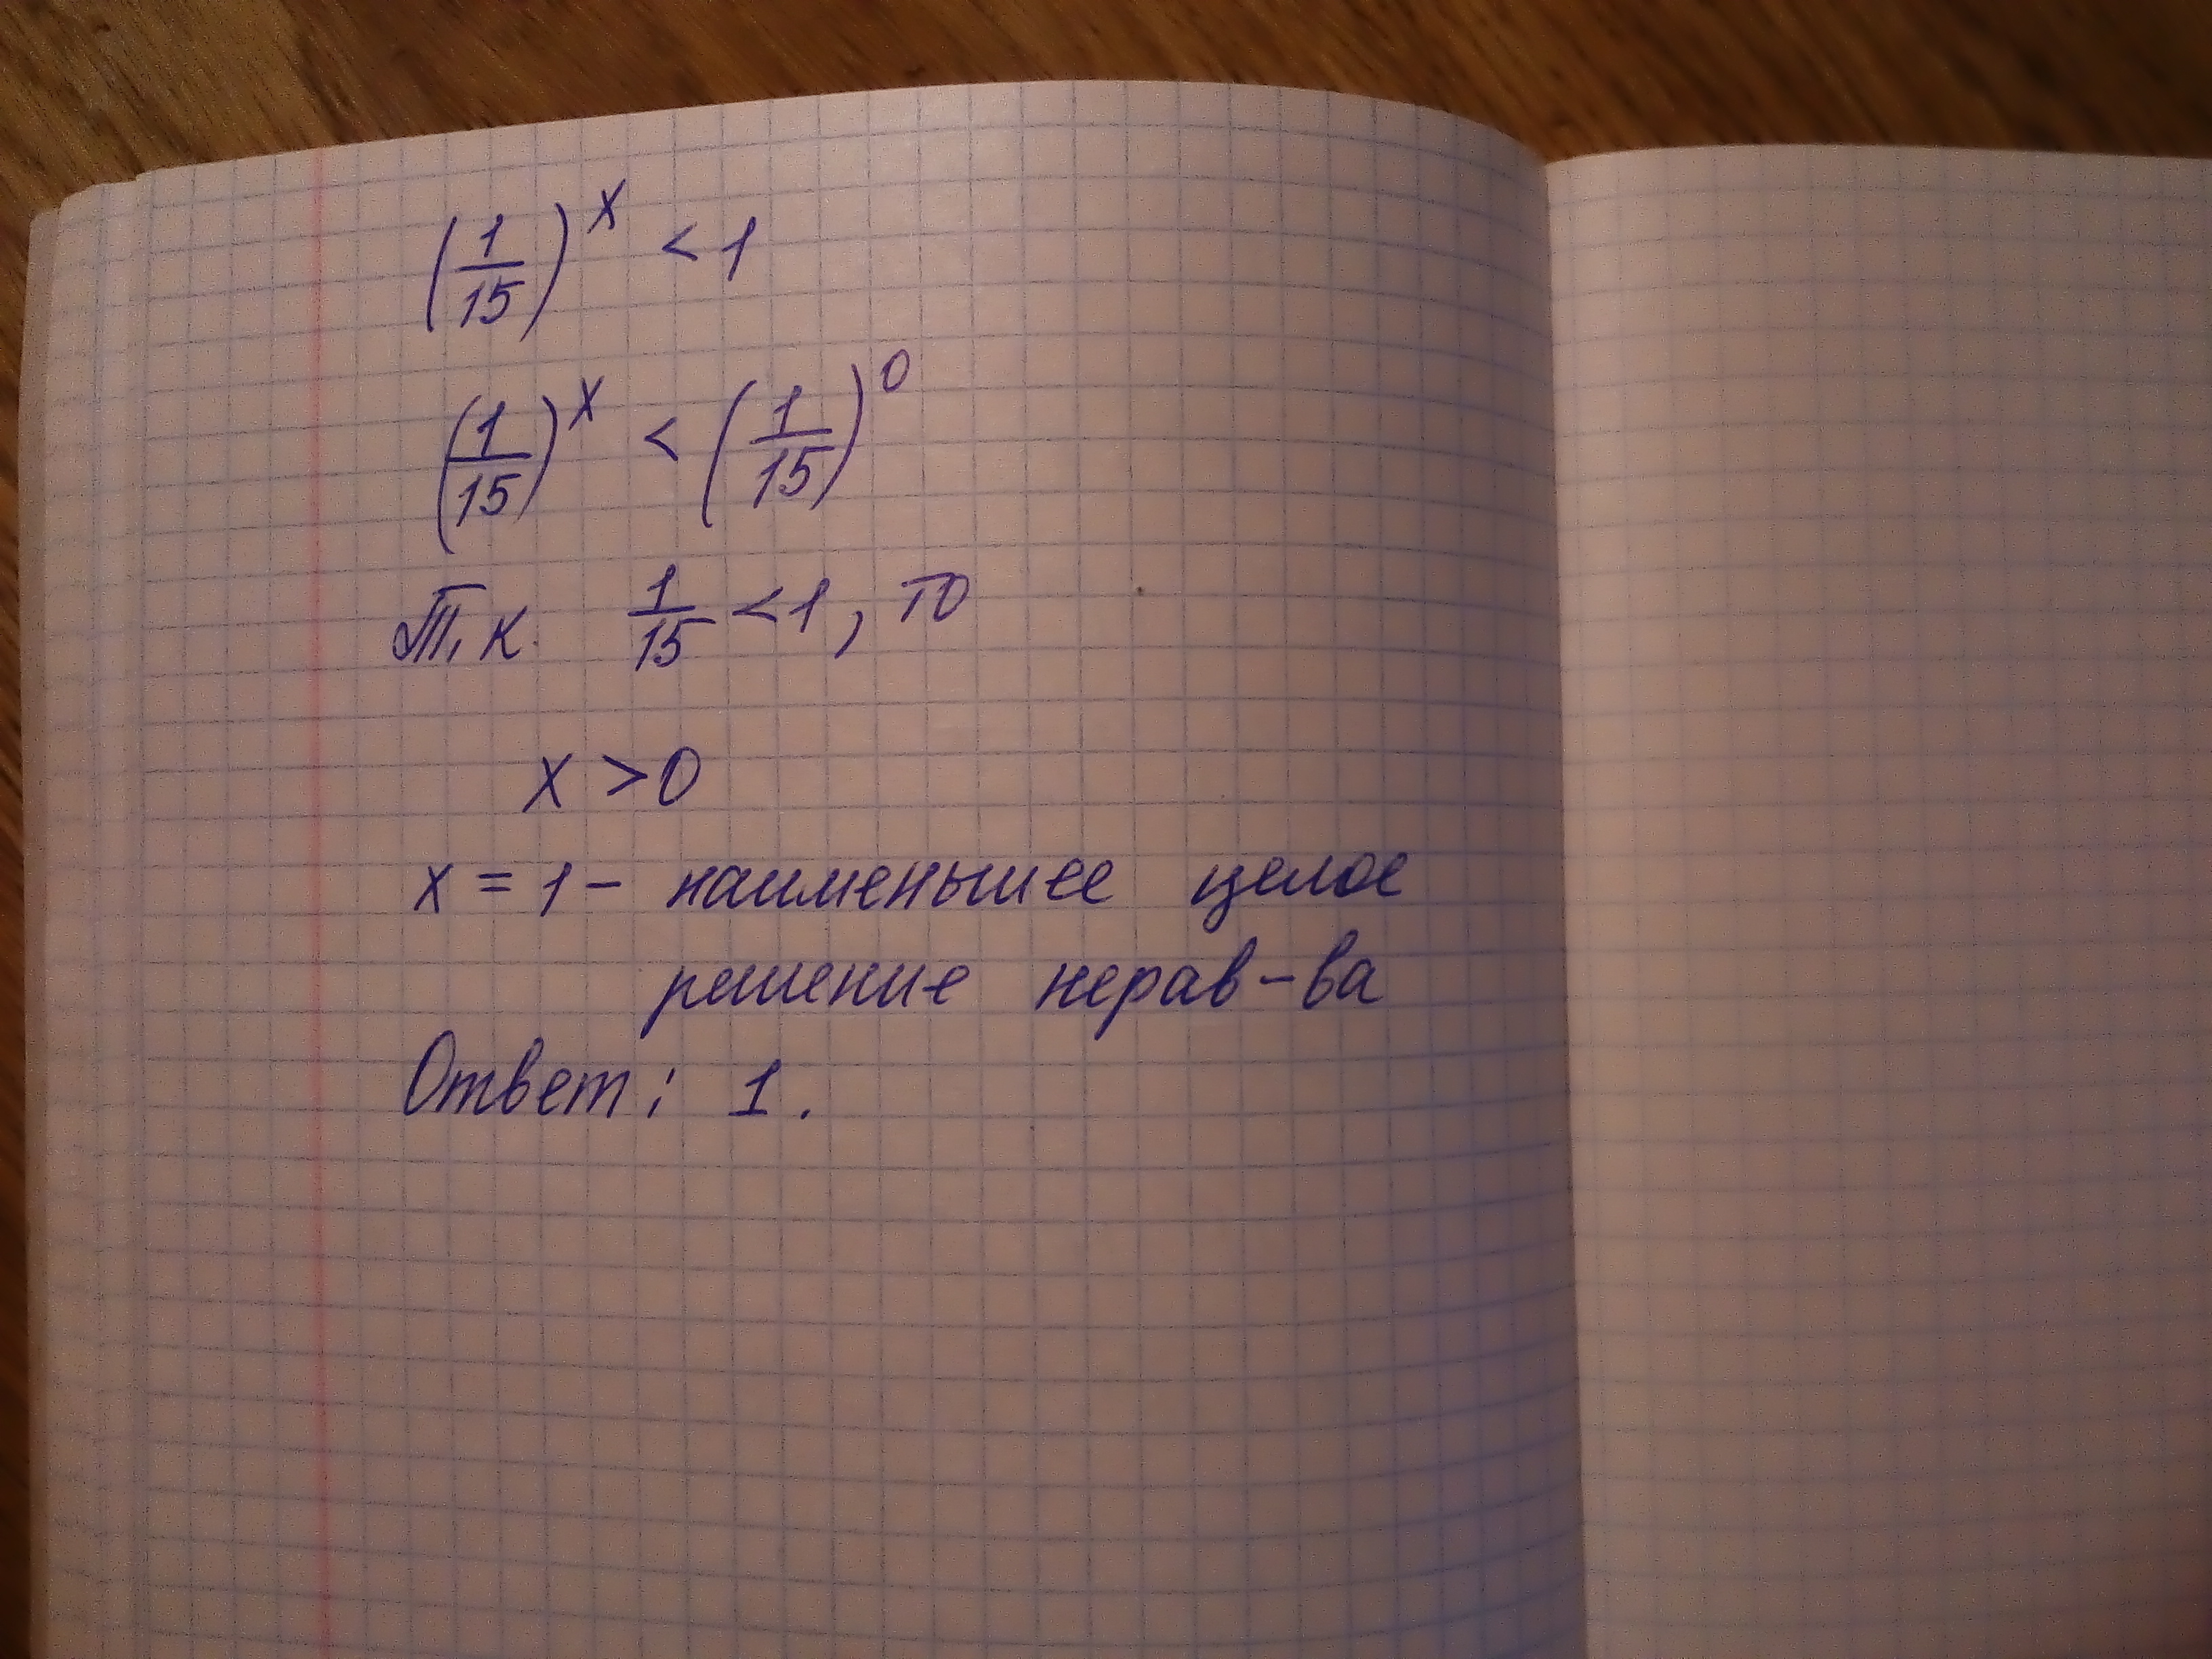 (1/15)^x < 1
(1/15)^x < (1/15)^0
Т.к. 1/15 < 1, то
x > 0
x = 1 – наименьшее целое
решение нерав-ва
Ответ: 1.